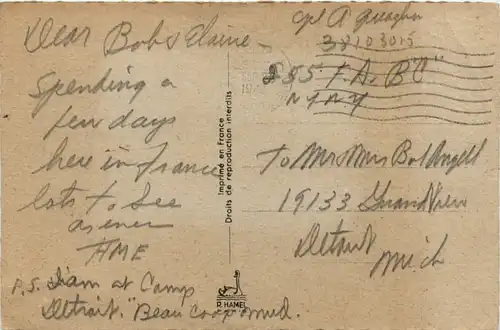 Dear Bob & Elaine -
Spending a
few days
here in France
lots to see
as ever
AME
P.S. I am at Camp
Detroit. "Beau coop" mud.
Imprimé en France
Droits de reproduction interdits
R. HAMEL
Cpl A
38103015
255 F.A. BN
N Y N Y
To Mr Mrs Bob Angell
19133 Grand View
Detroit
Mich